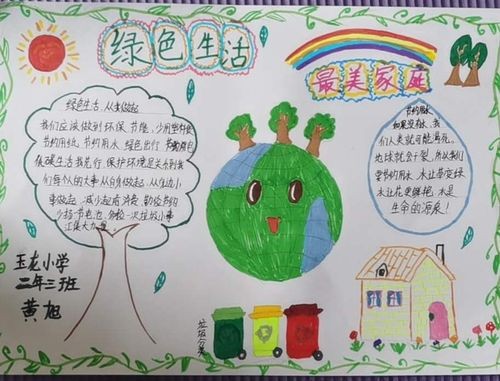 绿色生活
最美家庭
绿色生活,从我做起
我们应该做到环保 节能,少用塑料袋
节约用纸,节约用水,绿色出行
低碳生活我先行 保护环境是关系到我
们每个人的大事从自身做起,从生活小
事做起,减少起
少拾
江保大力量。
节约用水
如果没有水,我
们人类就可能渴死。
地球就会干裂,所以我们
要节约用水 让花草变绿
水让花更鲜艳,水是
生命的源泉!
玉龙小学
二年三班
黄旭
垃圾分类